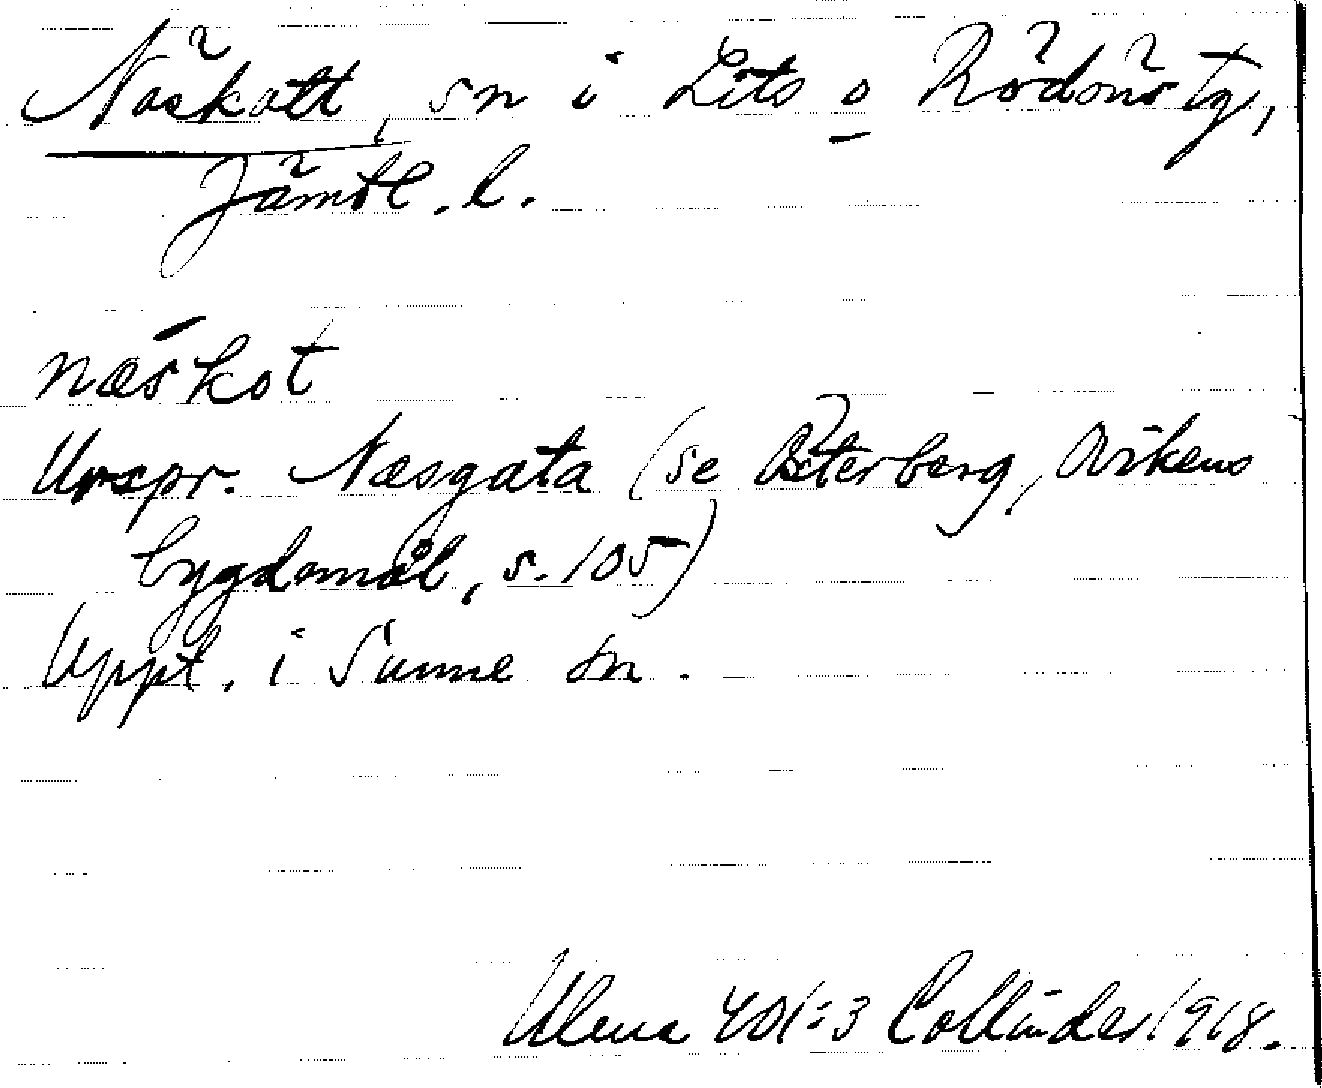 Näskott, sn i Lits o Rödöns tg,
Jämtl. l.
næskot
Urspr. Næsgata (se Österberg, Ovikens
bygdemål, s. 105)
Uppt. i Sunne sn.
Ulma 401:3 Collinder 1918.